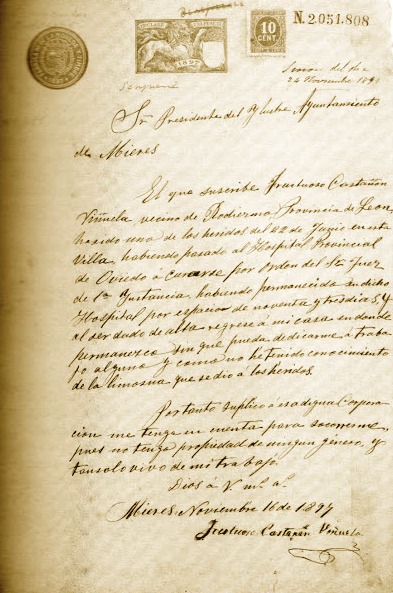 N.2.051.808
10
CENT.
1897
Sesion del dia
24 Noviembre 1897
Sr. Presidente del Ylustre Ayuntamiento
de Mieres
El que suscribe Fructuoso Castañon
Viñuela vecino de Rodiezmo, Provincia de Leon,
ha sido uno de los heridos del 22 de Junio en esta
Villa, habiendo pasado al Hospital Provincial
de Oviedo á curarse por orden del Sr. Juez
de 1ª Ynstancia, habiendo permanecido en dicho
Hospital por espacio de noventa y tres dias, y
al ser dado de alta regresé á mi casa en donde
permanezco sin que pueda dedicarme á traba
jo alguno y como no he tenido conocimiento
de la limosna que se dió á los heridos.
Por tanto suplico á esa digna Corpora
cion me tenga en cuenta para socorrerme,
pues no tengo propiedad de ningun género, y
tan solo vivo de mi trabajo.
Dios á V. mˢ aˢ
Mieres, Noviembre 16 de 1897
Fructuoso Castañon Viñuela